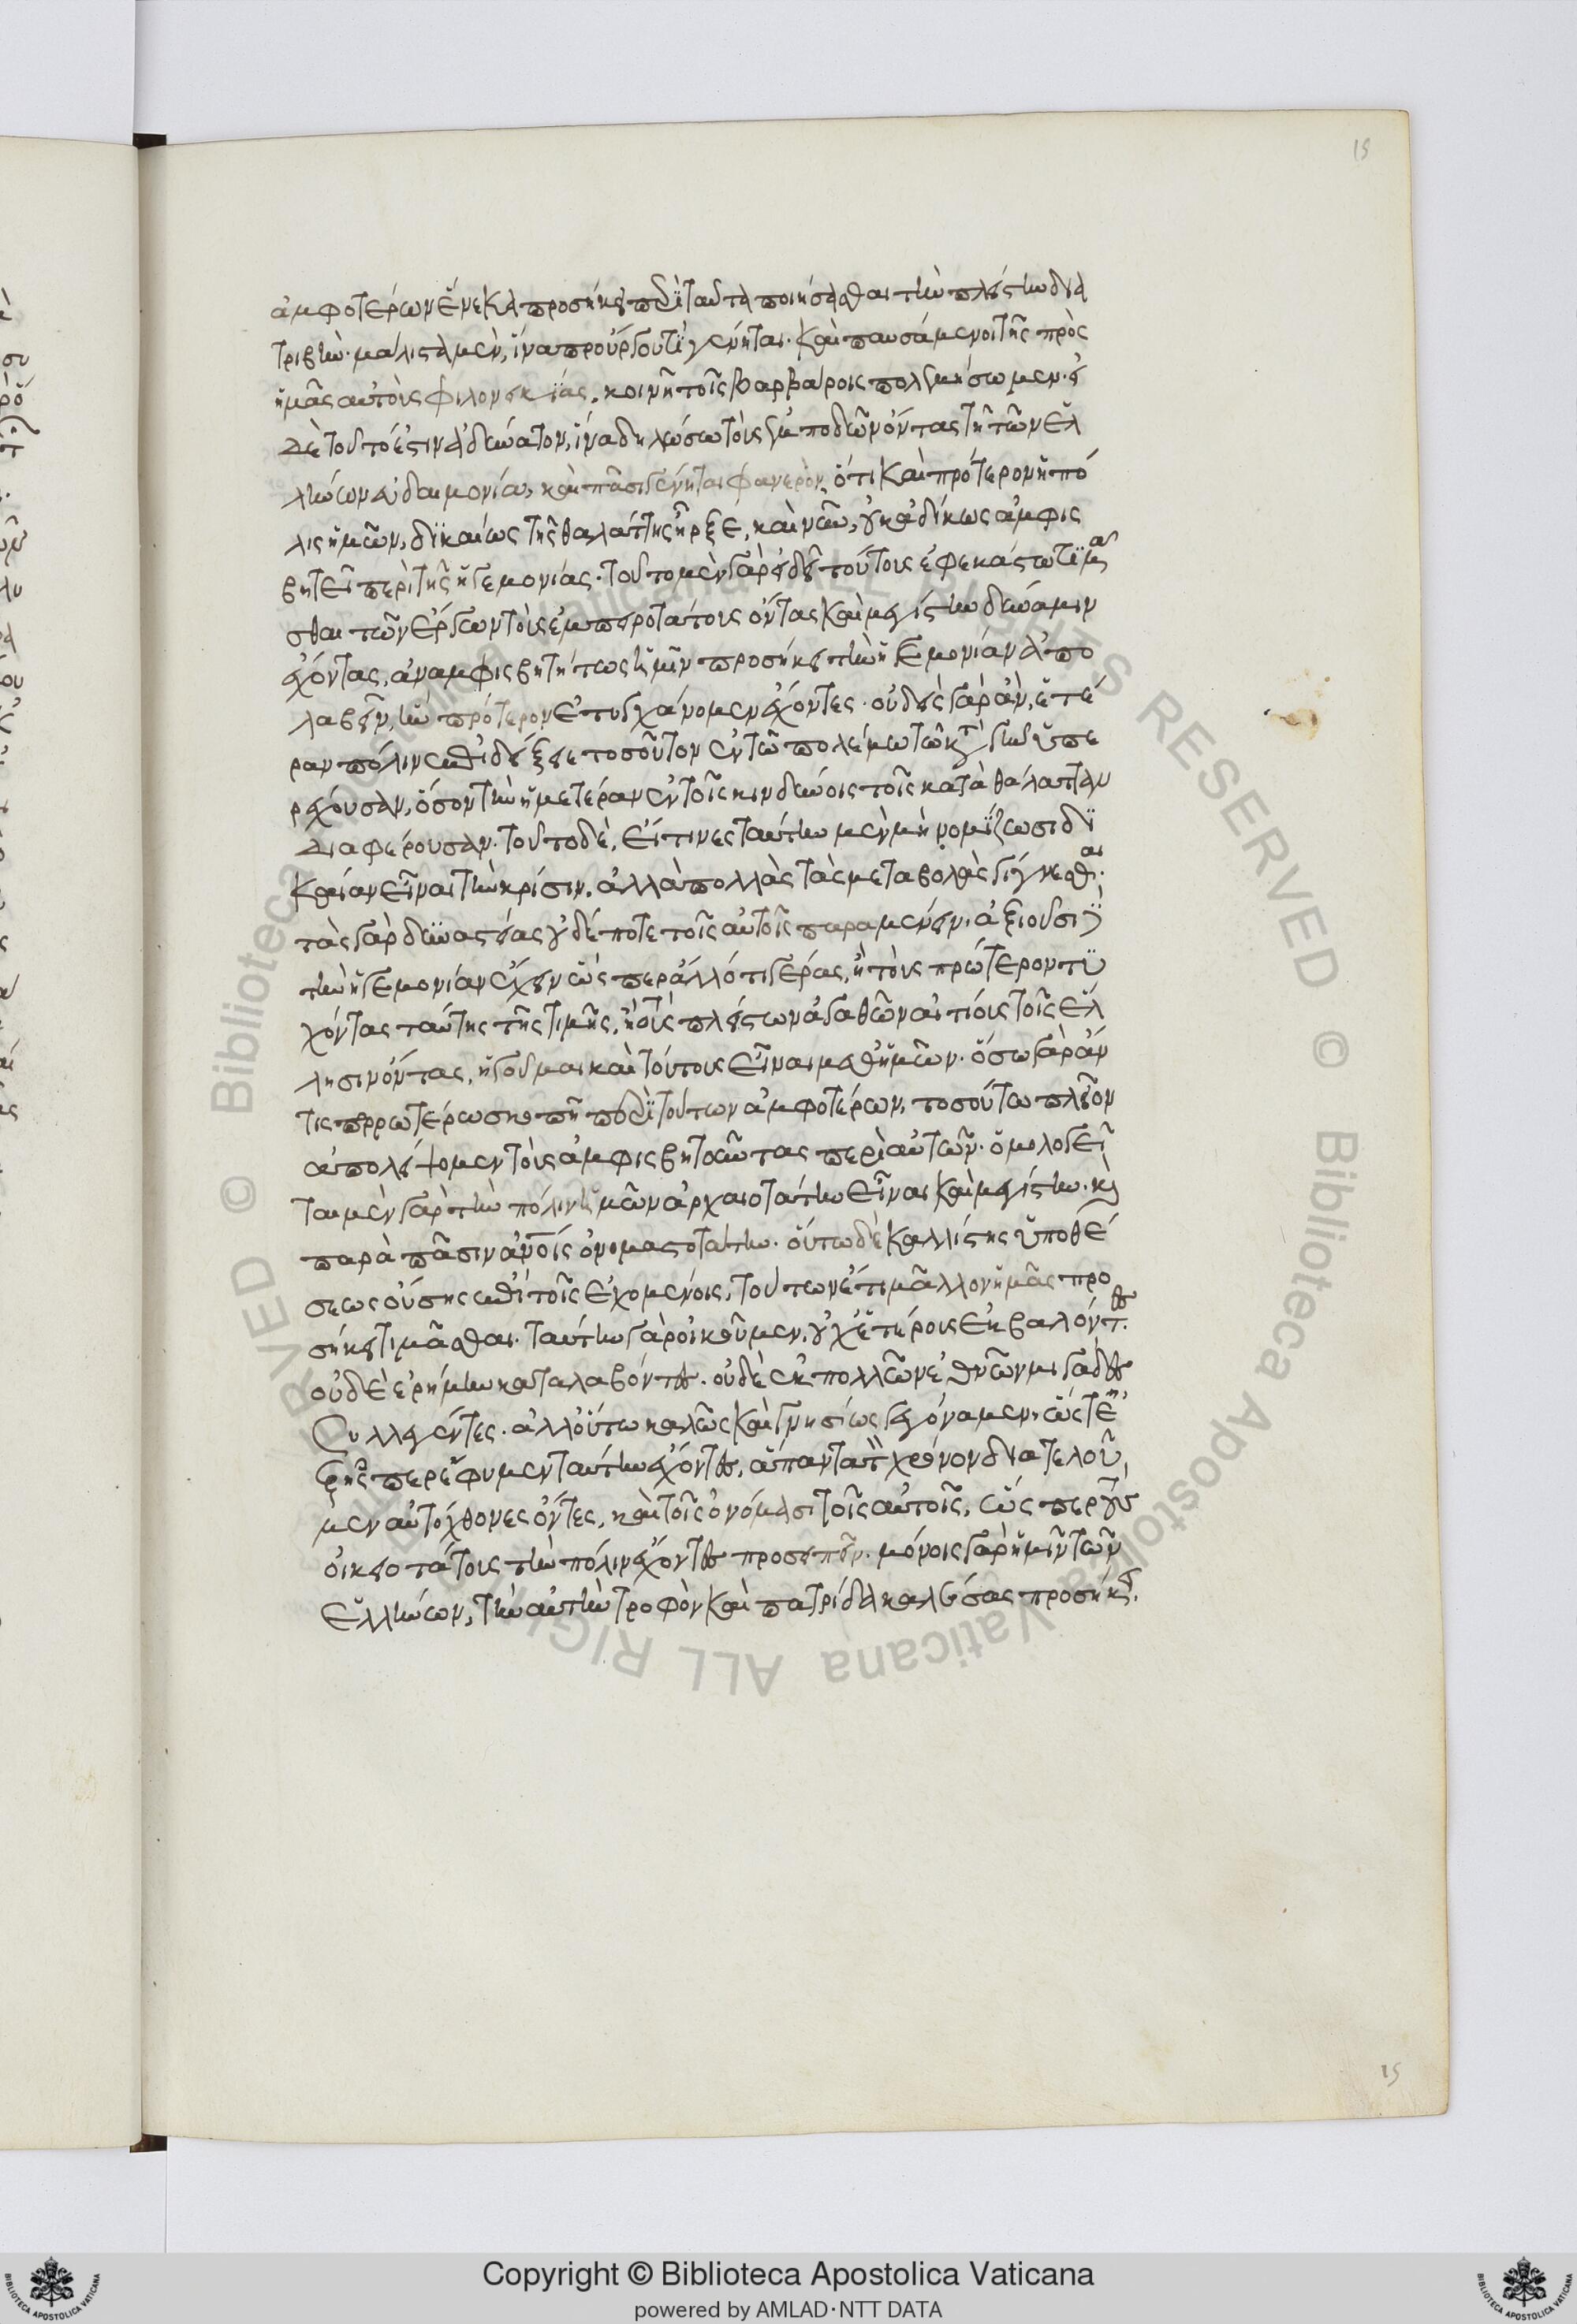 15
ἀμφοτέρων ἕνεκα προσήκει περὶ ταῦτα ποιήσασθαι τὴν πλείστην δια
τριβήν· μάλιστα μὲν, ἵνα προὔργου τι γένηται· καὶ παυσάμενοι τῆς πρὸς
ἡμᾶς αὐτοὺς φιλονεικίας, κοινῇ τοῖς βαρβάροις πολεμήσωμεν· εἰ
δὲ τοῦτό ἐστιν ἀδύνατον, ἵνα δηλώσω τοὺς ἐμποδὼν ὄντας τῇ τῶν ἑλ
λήνων εὐδαιμονίᾳ, καὶ πᾶσι γένηται φανερὸν, ὅτι καὶ πρότερον ἡ πό
λις ἡμῶν, δικαίως τῆς θαλάττης ἦρξε, καὶ νῦν, οὐκ ἀδίκως ἀμφισ
βητεῖ περὶ τῆς ἡγεμονίας· τοῦτο μὲν γὰρ εἰ δεῖ τούτους ἐφ ἑκάστῳ τιμᾶ
σθαι τῶν ἔργων τοὺς ἐμπειροτάτους ὄντας καὶ μεγίστην δύναμιν
ἔχοντας, ἀναμφισβητήτως ἡμῖν προσήκει τὴν ἡγεμονίαν ἀπο
λαβεῖν, ἣν πρότερον ἐτυγχάνομεν ἔχοντες· οὐδεὶς γὰρ ἂν, ἑτέ
ραν πόλιν ἐπιδείξειε τοσοῦτον ἐν τῷ πολέμῳ τῷ κατὰ γῆν ὑπε
ρέχουσαν, ὅσον τὴν ἡμετέραν ἐν τοῖς κινδύνοις τοῖς κατὰ θάλατταν
διαφέρουσαν· τοῦτο δὲ, εἴ τινες ταύτην μὲν μὴ νομίζωσι δι
καίαν εἶναι τὴν κρίσιν, ἀλλὰ πολλὰς τὰς μεταβολὰς γίγνεσθαι·
τὰς γὰρ δυναστείας οὐδέποτε τοῖς αὐτοῖς παραμένειν· ἀξιοῦσι
τὴν ἡγεμονίαν ἔχειν ὥσπερ ἄλλό τι γέρας, ἢ τοὺς πρώτερον τυ
χόντας ταύτης τῆς τιμῆς, ἢ τοὺς πλείστων ἀγαθῶν αἰτίους τοῖς ἕλ
λησιν ὄντας, ἡγοῦμαι καὶ τούτους εἶναι μεθ ἡμῶν· ὅσῳ γὰρ ἄν
τις πορρωτέρω σκοπῇ περὶ τούτων ἀμφοτέρων, τοσούτῳ πλεῖον
ἀπολείψομεν τοὺς ἀμφισβητοῦντας περὶ αὐτῶν· ὁμολογεῖ
ται μὲν γὰρ τὴν πόλιν ἡμῶν ἀρχαιοτάτην εἶναι καὶ μεγίστην· καὶ
παρὰ πᾶσιν ἀνοις ὀνομαστοτάτην· οὕτω δὲ καλλίστης ὑποθέ
σεως οὔσης ἐπὶ τοῖς ἐχομένοις, τούτων ἔτι μᾶλλον ἡμᾶς προ
σήκει τιμᾶσθαι· ταύτην γὰρ οἰκοῦμεν, οὐχ ἑτέρους ἐκβαλόντες·
οὐδὲ ἐρήμην καταλαβόντες· οὐδὲ ἐκ πολλῶν ἐθνῶν μιγάδες
συλλεγέντες· ἀλλ οὕτω καλῶς καὶ γνησίως γεγόναμεν· ὥστε ἐ
ξ ἧς περ ἔφυμεν ταύτην ἔχοντες, ἅπαντα τὸν χρόνον διατελοῦ
μεν αὐτόχθονες ὄντες, καὶ τοῖς ὀνόμασι τοῖς αὐτοῖς, ὥσπερ τοὺς
οἰκειοτάτους τὴν πόλιν ἔχοντες προσειπεῖν· μόνοις γὰρ ἡμῖν τῶν
ἑλλήνων, τὴν αὐτὴν τροφὸν καὶ πατρίδα καλέσαι προσήκει·
15
Copyright © Biblioteca Apostolica Vaticana
powered by AMLAD·NTT DATA